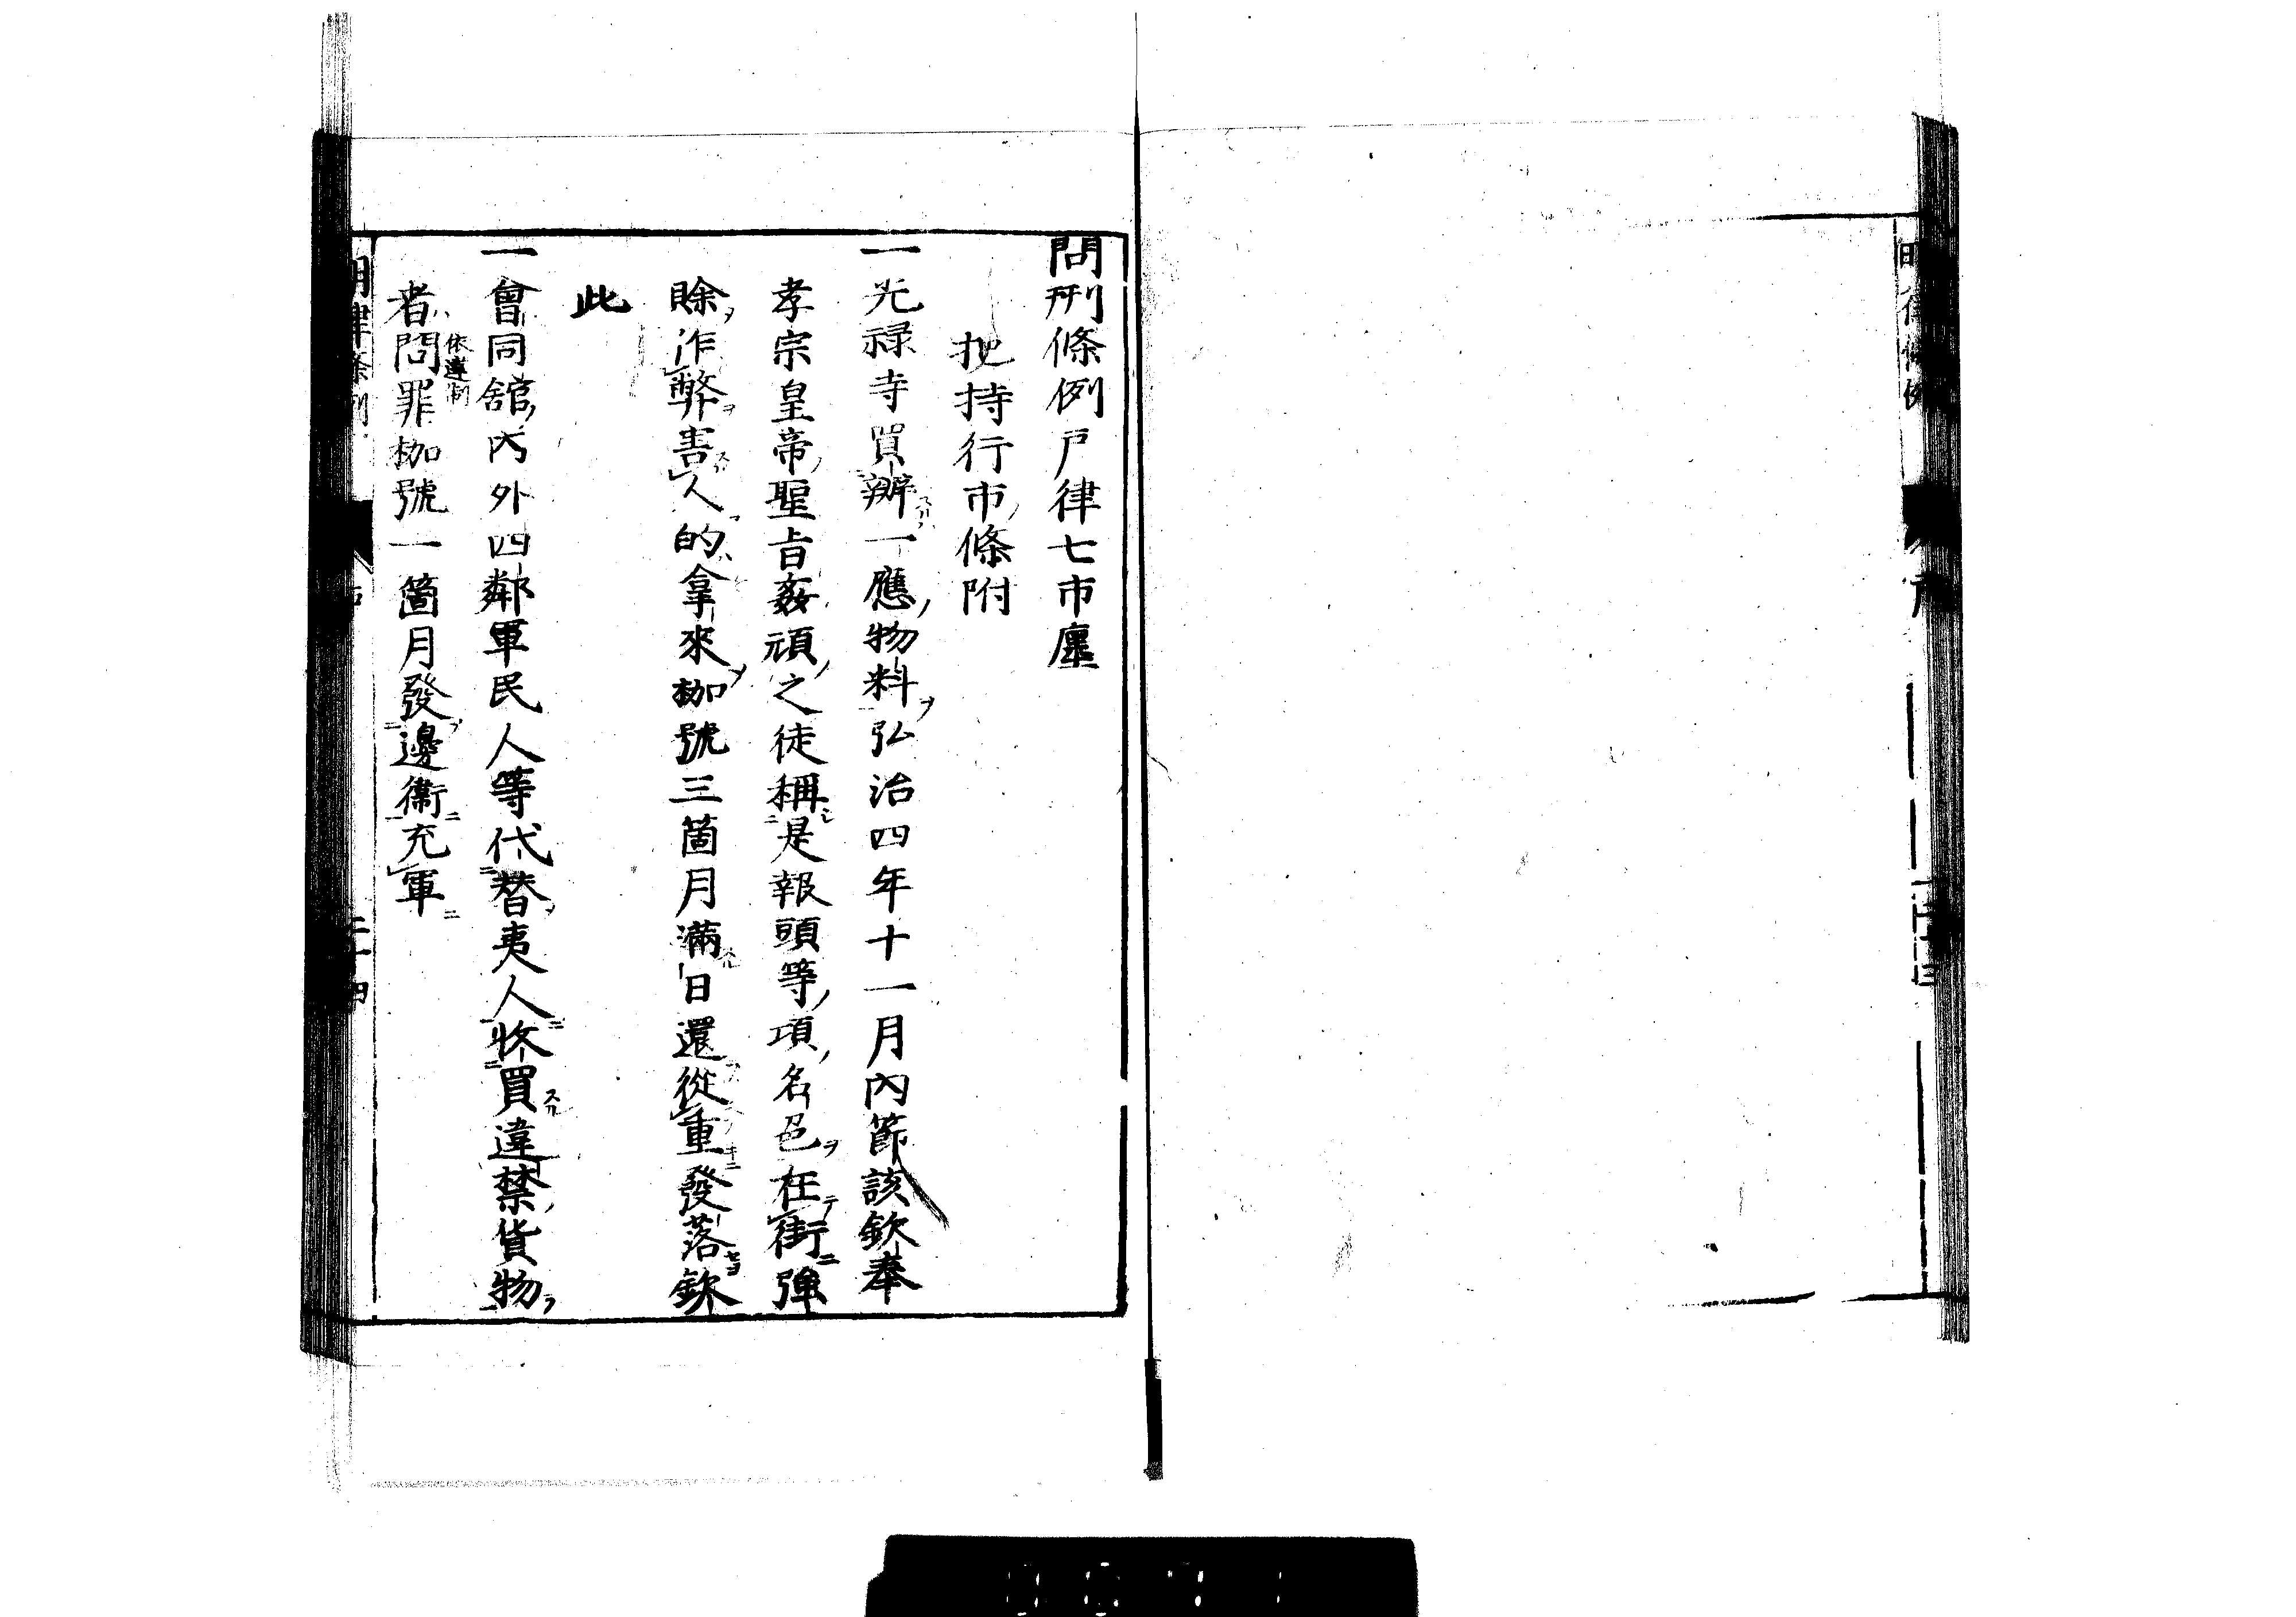 問刑條例戸律七市廛
把持行市條附
一光禄寺買辦一應物料弘治四年十一月內節該欽奉
孝宗皇帝聖旨姦頑之徒稱是報頭等項名色在街強
賒作弊害人的拿來枷號三箇月滿日還從重發落欽
此
一會同舘內外四鄰軍民人等代替夷人收買違禁貨物
者問罪枷號一箇月發邊衞充軍
依違制